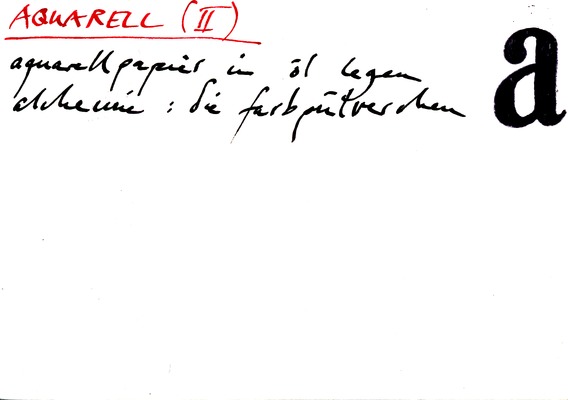 AQUARELL (II)
a
aquarellpapier in öl legen
alchemie : die farbpülverchen